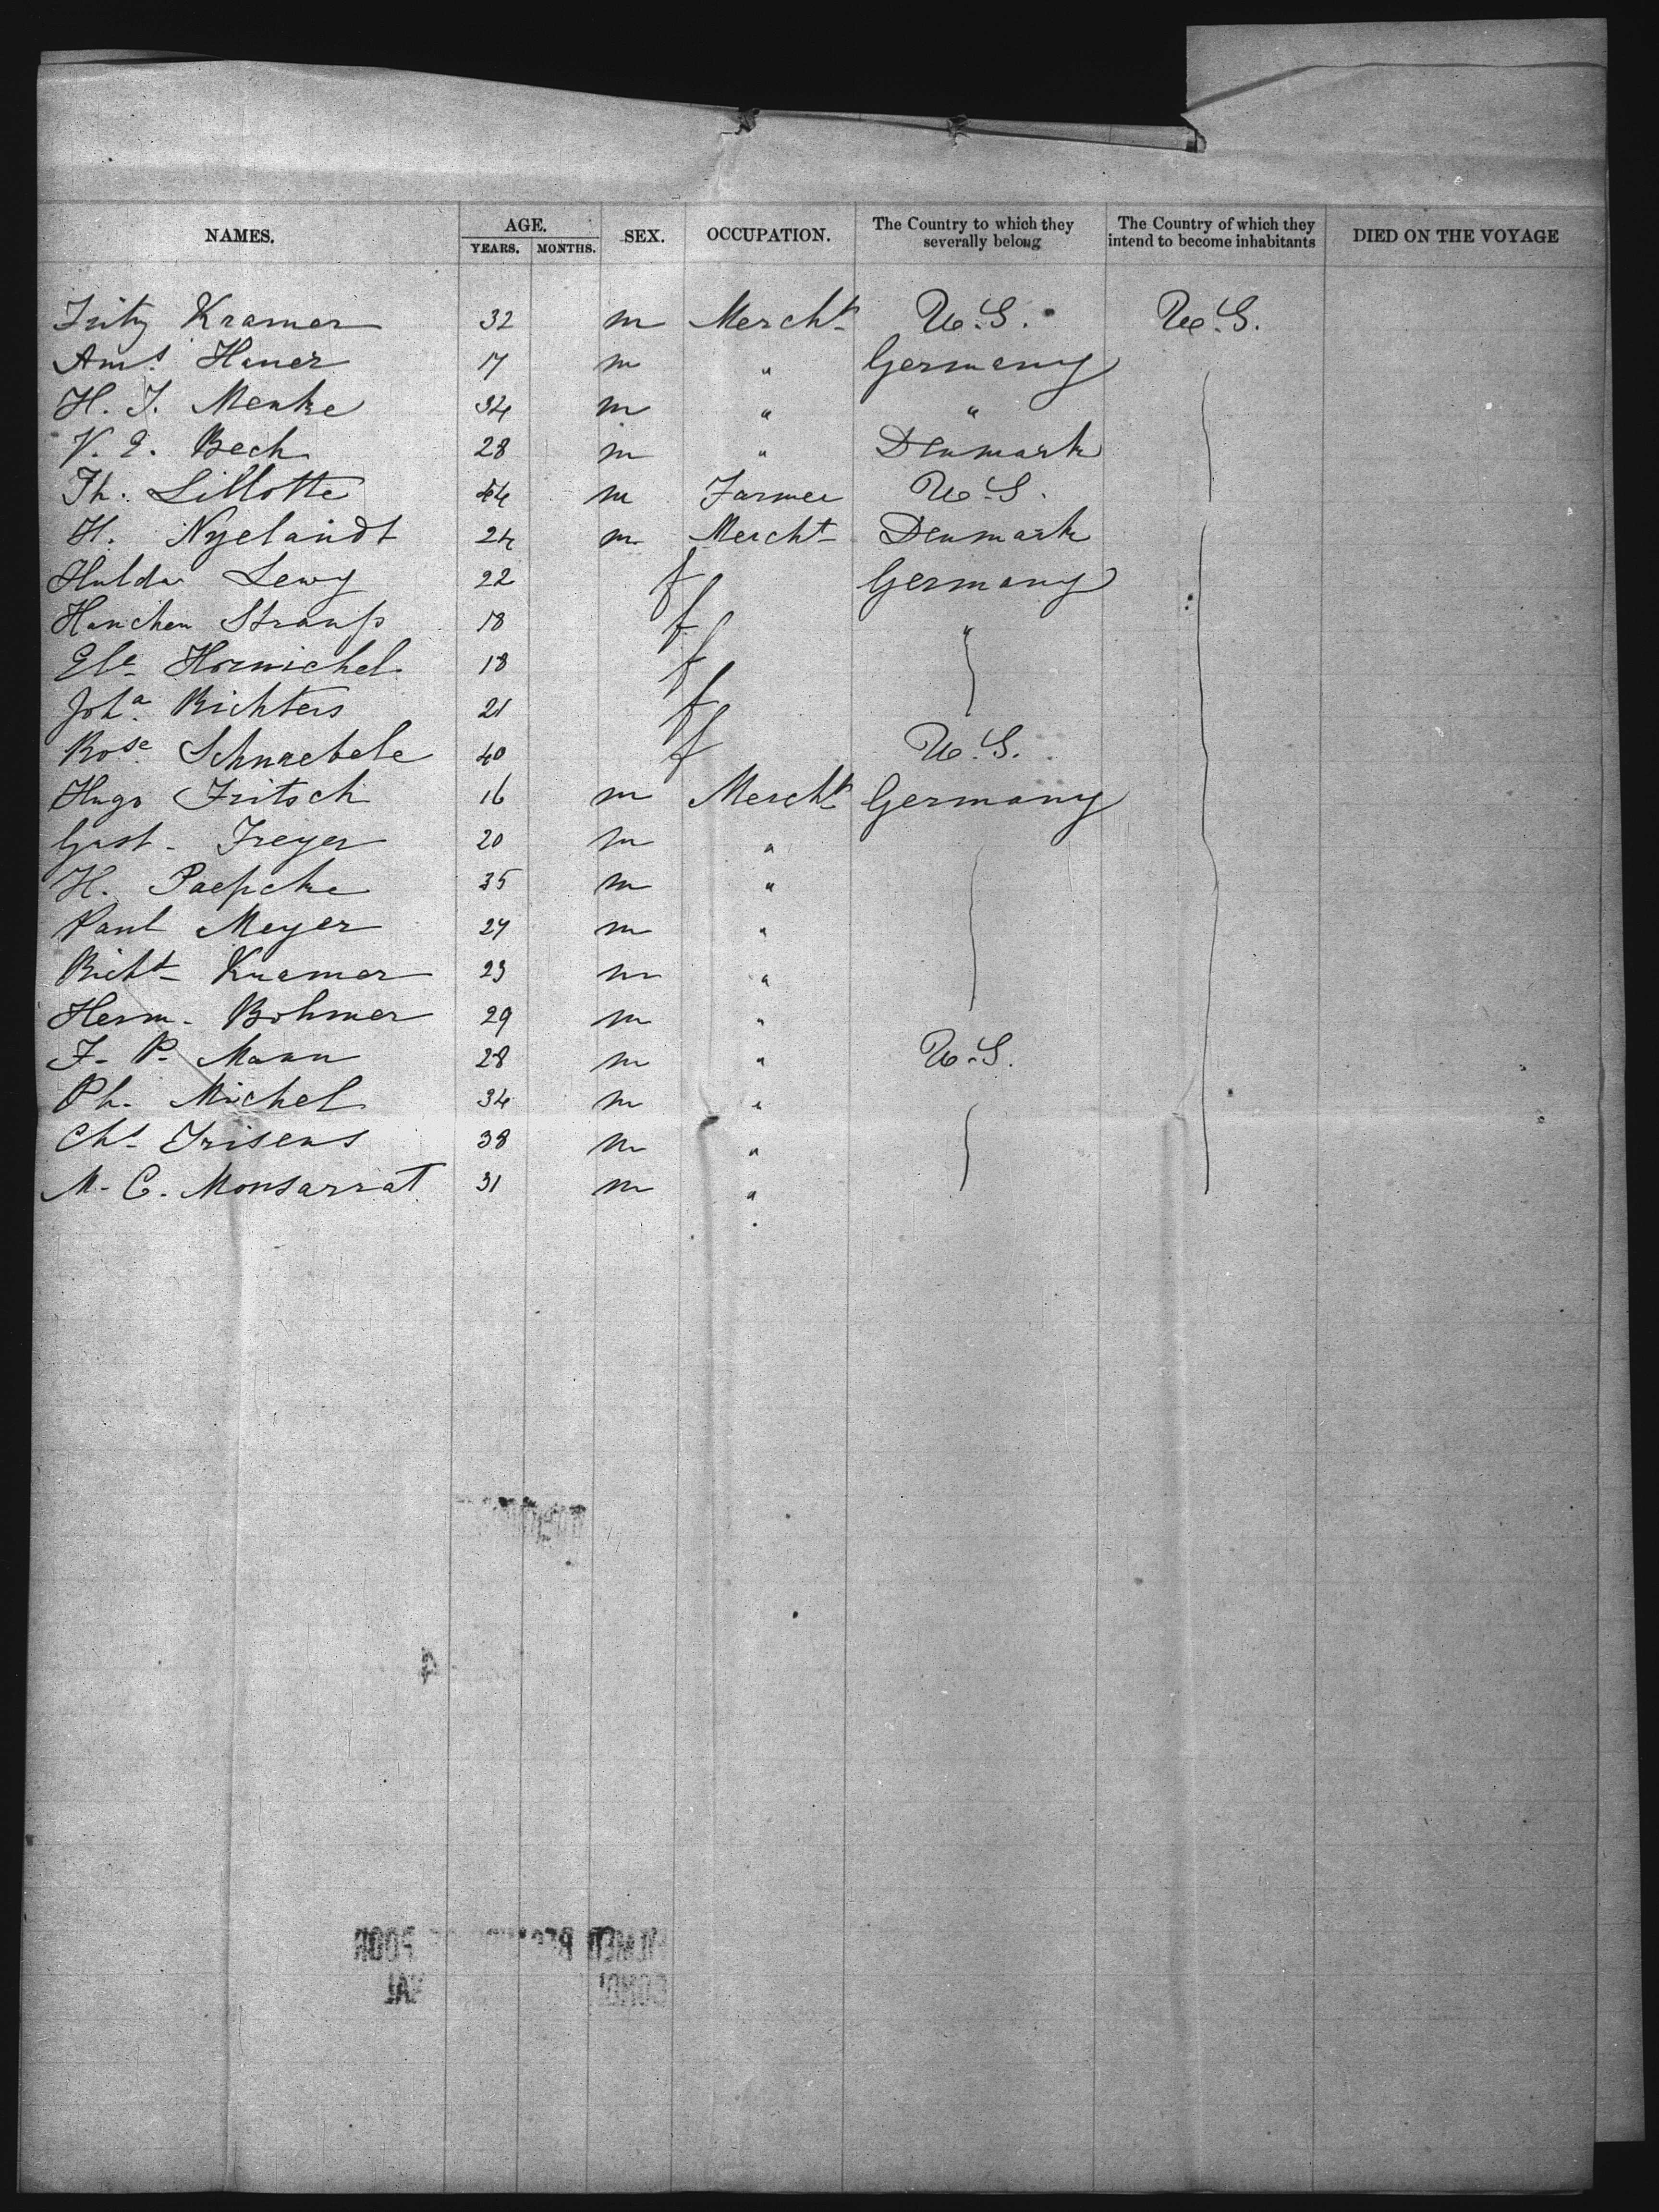 NAMES. AGE. YEARS. MONTHS. SEX. OCCUPATION. The Country to which they severally belong The Country of which they intend to become inhabitants DIED ON THE VOYAGE
Fritz Kramer 32 m Mercht U.S. U.S.
Ams. Hauer 17 m " Germany
H. J. Menke 34 m " "
V. E. Bech 28 m " Denmark
Th. Lillotte 44 m Farmer U.S.
H. Nyelandt 24 m Mercht Denmark
Hulda Lewy 22 f Germany
Hanchen Strauß 18 f "
Ele Hornichel 18 f
Joha Richters 21 f
Rose Schnaebele 40 f U.S.
Hugo Fritsch 16 m Mercht Germany
Gust. Freyer 20 m "
H. Paepcke 35 m "
Paul Meyer 27 m "
Richd Kramer 23 m "
Herm. Bohmer 29 m "
F. P. Mann 28 m " U.S.
Ph. Michel 34 m "
Chs Frisens 38 m "
M. C. Monsarrat 31 m "
4